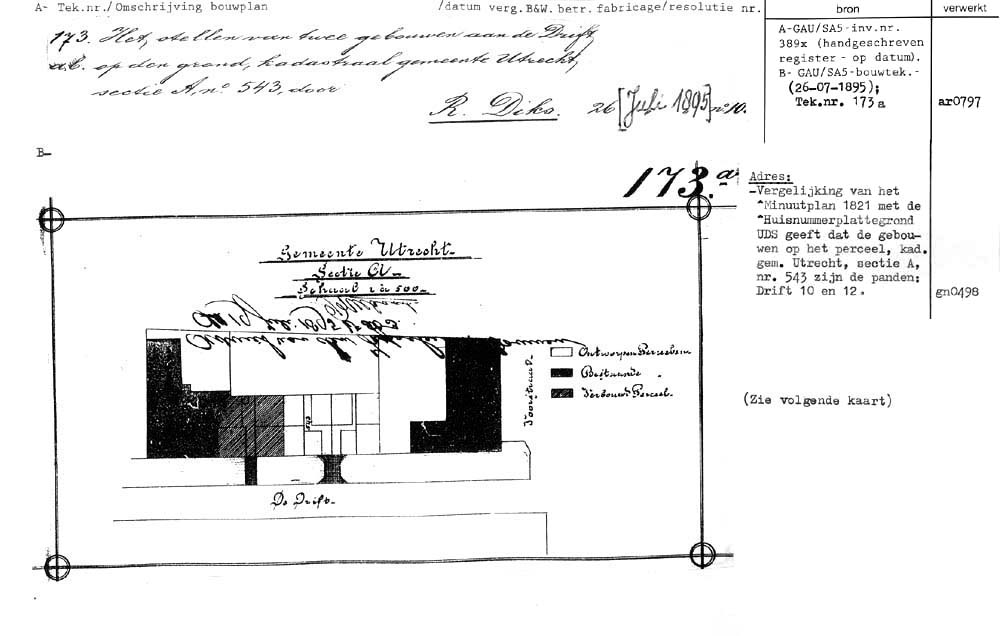 A- Tek.nr./Omschrijving bouwplan /datum verg.B&W.betr.fabricage/resolutie nr.
bron
verwerkt
173. Het stellen van twee gebouwen aan de Drift,
op den grond, kadastraal gemeente Utrecht,
sectie A, no 543, door
R. Diks. 26 [Juli 1895] no 10.
A-GAU/SA5-inv.nr.
389x (handgeschreven
register - op datum).
B- GAU/SA5-bouwtek.-
(26-07-1895);
Tek.nr. 173a
ar0797
B-
173.a
Adres:
-Vergelijking van het
^Minuutplan 1821 met de
^Huisnummerplattegrond
UDS geeft dat de gebou-
wen op het perceel, kad.
gem. Utrecht, sectie A,
nr. 543 zijn de panden:
Drift 10 en 12.
gn0498
(Zie volgende kaart)
Gemeente Utrecht.
Sectie A.
Schaal 1 à 500.
Ontworpen Perceelen
Bestaande "
Verbouwd Perceel.
Voorstraat.
De Drift.